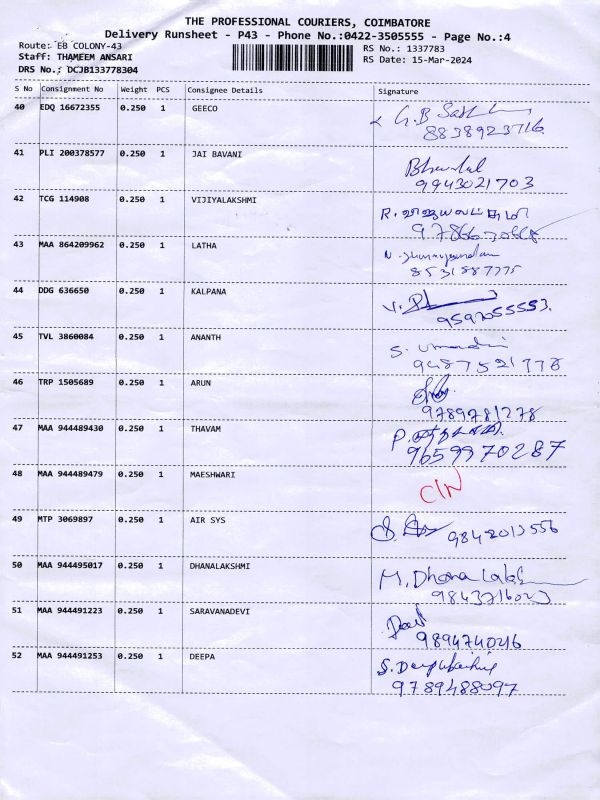 THE PROFESSIONAL COURIERS, COIMBATORE
Delivery Runsheet - P43 - Phone No.:0422-3505555 - Page No.:4
Route: EB COLONY-43 RS No.: 1337783
Staff: THAMEEM ANSARI RS Date: 15-Mar-2024
DRS No.: DCJB133778304
S No Consignment No Weight PCS Consignee Details Signature
40 EDQ 16672355 0.250 1 GEECO G.B
8838923716
41 PLI 200378577 0.250 1 JAI BAVANI
9943021703
42 TCG 114908 0.250 1 VIJIYALAKSHMI R.
43 MAA 864209962 0.250 1 LATHA N.
44 DDG 636650 0.250 1 KALPANA V.
9597055553.
45 TVL 3860084 0.250 1 ANANTH S.
9487521776
46 TRP 1505689 0.250 1 ARUN
9789781278
47 MAA 944489430 0.250 1 THAVAM P.
9659970287
48 MAA 944489479 0.250 1 MAESHWARI CIN
49 MTP 3069897 0.250 1 AIR SYS 9842013556
50 MAA 944495017 0.250 1 DHANALAKSHMI M. Dhana Laksh
51 MAA 944491223 0.250 1 SARAVANADEVI
9894740216
52 MAA 944491253 0.250 1 DEEPA S.
9789488097